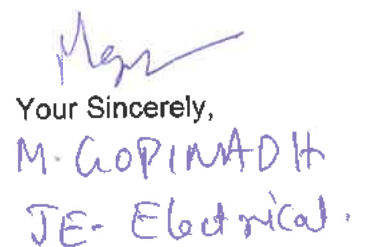 Your Sincerely,
M. GOPINADH
JE- Electrical.